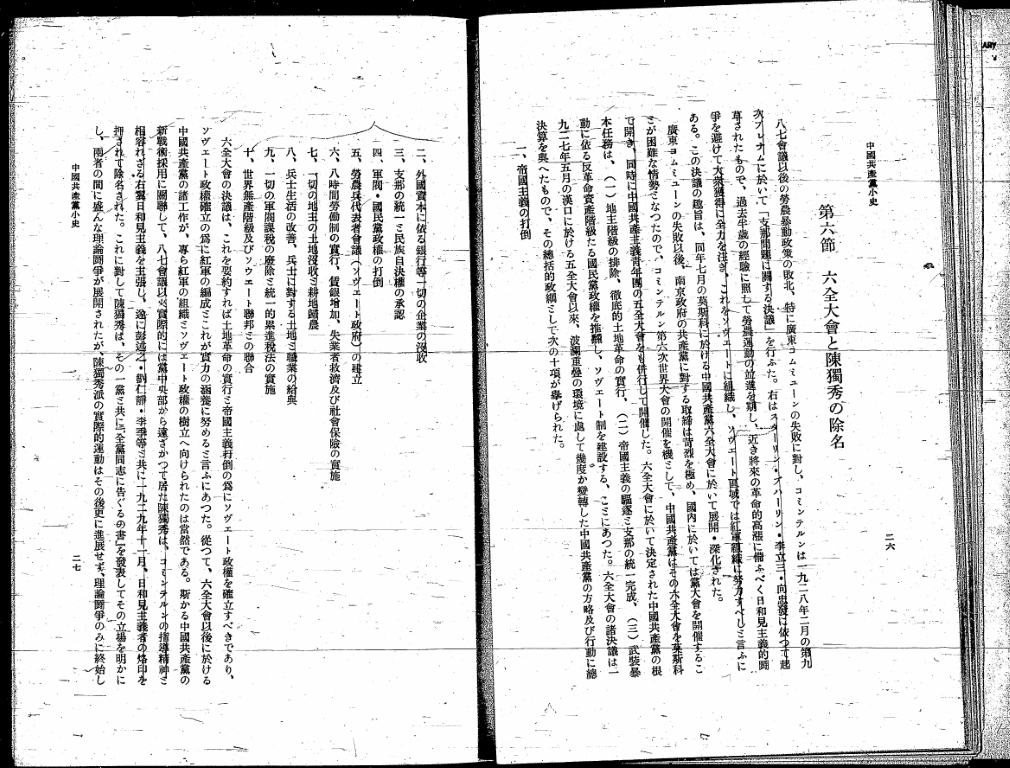 中國共產黨小史
二六
第六節　六全大會と陳獨秀の除名
八七會議以後の勞農暴動政策の敗北、特に廣東コムミューンの失敗に對し、コミンテルンは一九二八年二月の第九
次プレナムに於いて「支那問題に關する決議」を行ふた。右はスターリン・ブハーリン・李立三・向忠發に依つて起
草されたもので、過去半歳の經驗に照して勞農運動の並進を期し、近き將來の革命的高漲に備ふべく日和見主義的鬪
爭を避けて大衆獲得に全力を注ぎ、これをソヴエートに組織し、ソヴエート區域では紅軍組織に努力すべしと言ふに
ある。この決議の趣旨は、同年七月の莫斯科に於ける中國共產黨六全大會に於いて展開・深化された。
廣東コムミューンの失敗以後、南京政府の共產黨に對する取締は苛烈を極め、國內に於いては黨大會を開催するこ
とが困難な情勢となつたので、コミンテルン第六次世界大會の開催を機として、中國共產黨はその六全大會を莫斯科
で開き、同時に中國共產主義靑年團の五全大會をも併行して開催した。六全大會に於いて決定された中國共產黨の根
本任務は、（一）地主階級の排除、徹底的土地革命の實行、（二）帝國主義の驅逐と支那の統一完成、（三）武裝暴
動に依る反革命資產階級たる國民黨政權を推飜し、ソヴエート制を建設する、ことにあつた。六全大會の諸決議は一
九二七年五月の漢口に於ける五全大會以來、波瀾重疊の環境に處して幾度か變轉した中國共產黨の方略及び行動に總
決算を與へたもので、その總括的政綱として次の十項が擧げられた。
一、帝國主義の打倒
二、外國資本に依る銀行等一切の企業の沒收
三、支那の統一と民族自決權の承認
四、軍閥・國民黨政權の打倒
五、勞農兵代表者會議（ソヴエート政府）の建立
六、八時間勞働制の實行、賃銀增加、失業者救濟及び社會保險の實施
七、一切の地主の土地沒收と耕地歸農
八、兵士生活の改善、兵士に對する土地と職業の給與
九、一切の軍閥課稅の廢除と統一的累進稅法の實施
十、世界無產階級及びソヴエート聯邦との聯合
六全大會の決議は、これを要約すれば土地革命の實行と帝國主義打倒の爲にソヴエート政權を確立すべきであり、
ソヴエート政權確立の爲に紅軍の編成とこれが實力の涵養に努めると言ふにあつた。從つて、六全大會以後に於ける
中國共產黨の諸工作が、專ら紅軍の組織とソヴエート政權の樹立へ向けられたのは當然である。斯かる中國共產黨の
新戰術採用に關聯して、八七會議以來實際的には黨中央部から遠ざかつて居た陳獨秀は、コミンテルンの指導精神と
相容れざる右翼日和見主義を主張し、遂に彭述之・劉仁靜・李季等と共に一九二九年十一月、日和見主義者の烙印を
押されて除名された。これに對して陳獨秀は、その一黨と共に「全黨同志に告ぐるの書」を發表してその立場を明かに
し、兩者の間に盛んな理論鬪爭が展開されたが、陳獨秀派の實際的運動はその後更に進展せず、理論鬪爭のみに終始し
中國共產黨小史
二七